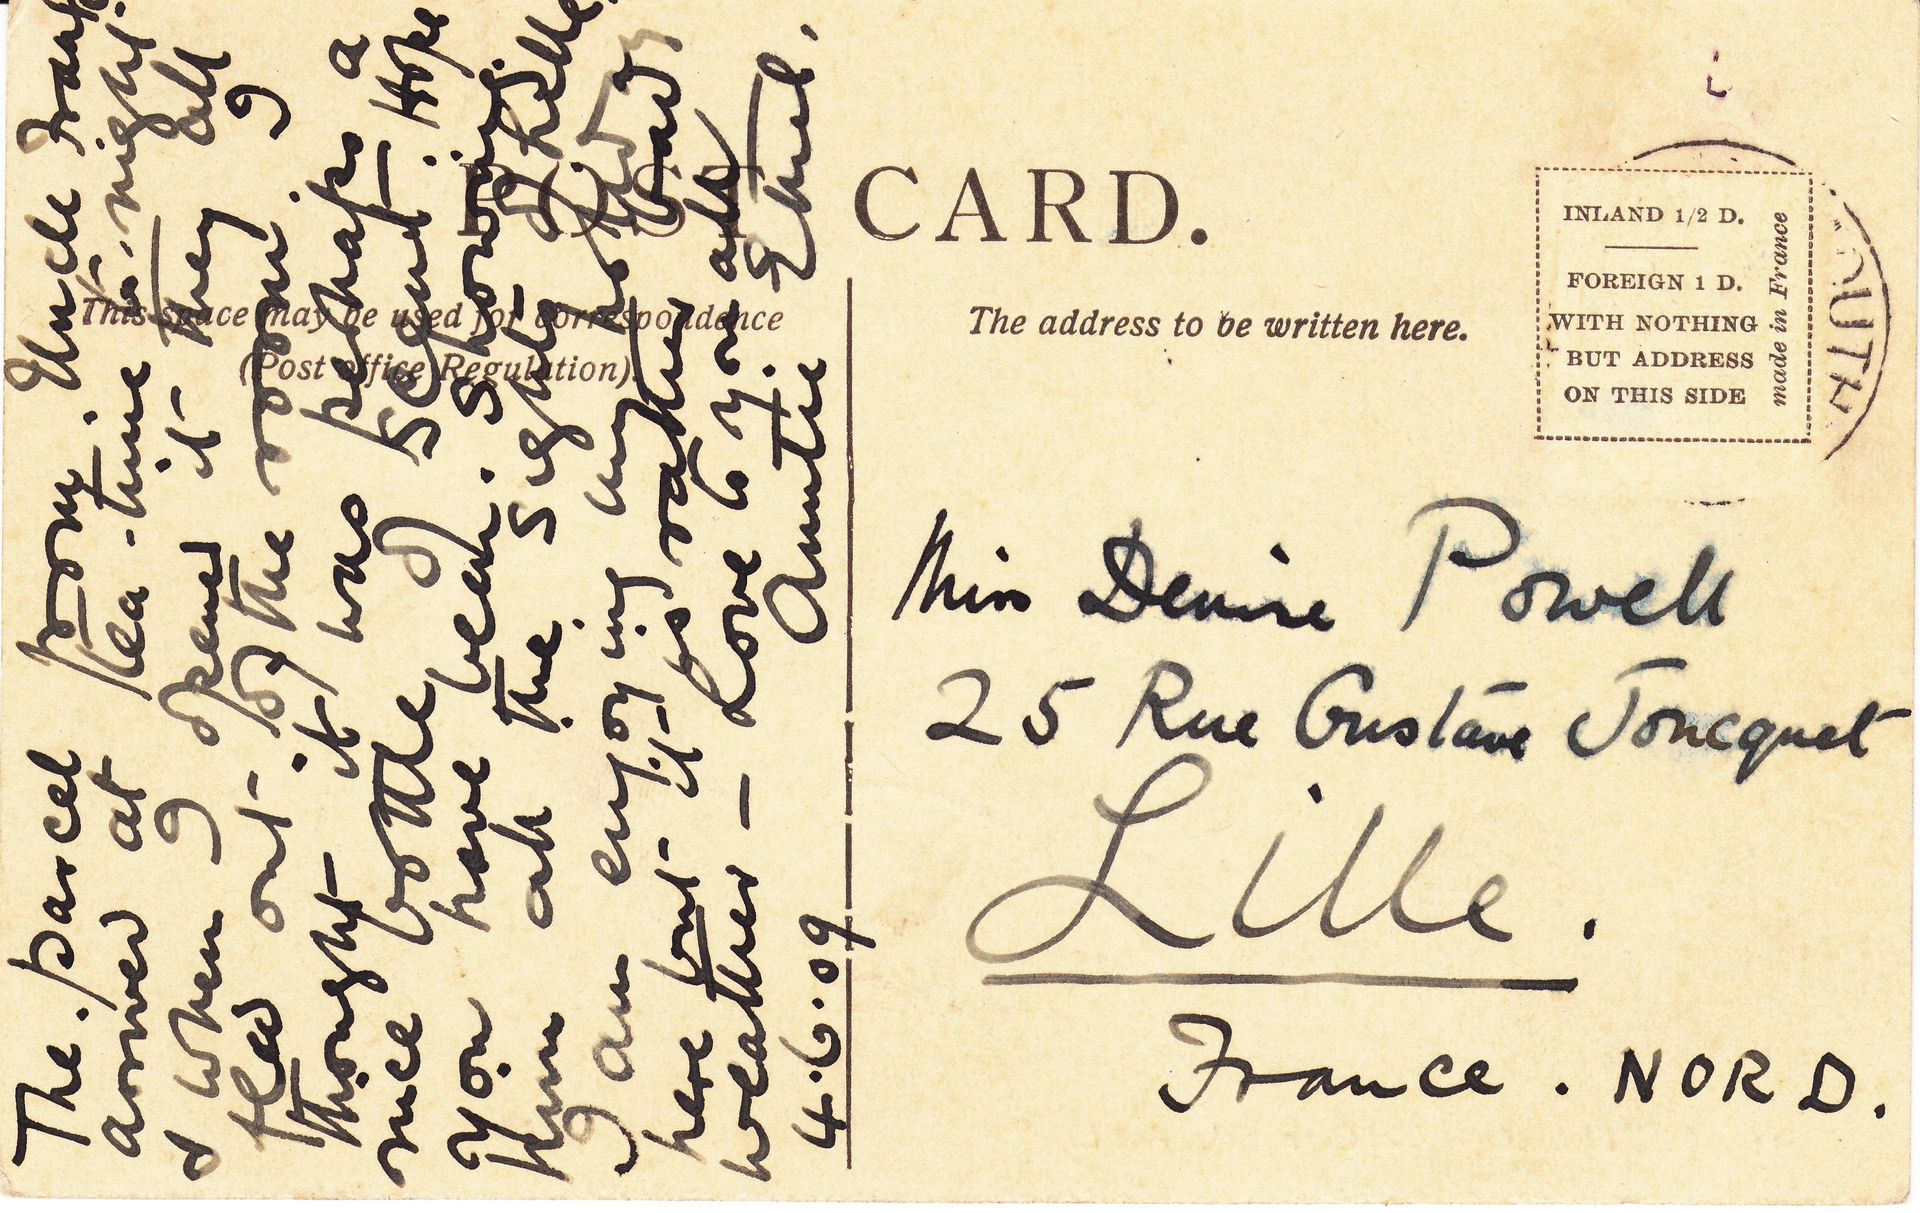 POST CARD.
This space may be used for correspondence
(Post office Regulation).
The address to be written here.
INLAND 1/2 D.
FOREIGN 1 D.
WITH NOTHING
BUT ADDRESS
ON THIS SIDE
made in France
OUTH
The parcel from Uncle Frank
arrived at tea-time to-night
& when I opened it they all
flew out of the room. I
thought it was perhaps a
nice bottle of scent. Hope
you have been showing
him all the sights of Lille.
I am enjoying my holiday
here but it is rather bad
weather – Love to you all.
4.6.09 Auntie Ethel.
Miss Denise Powell
25 Rue Gustave Joncquet
Lille.
France. NORD.